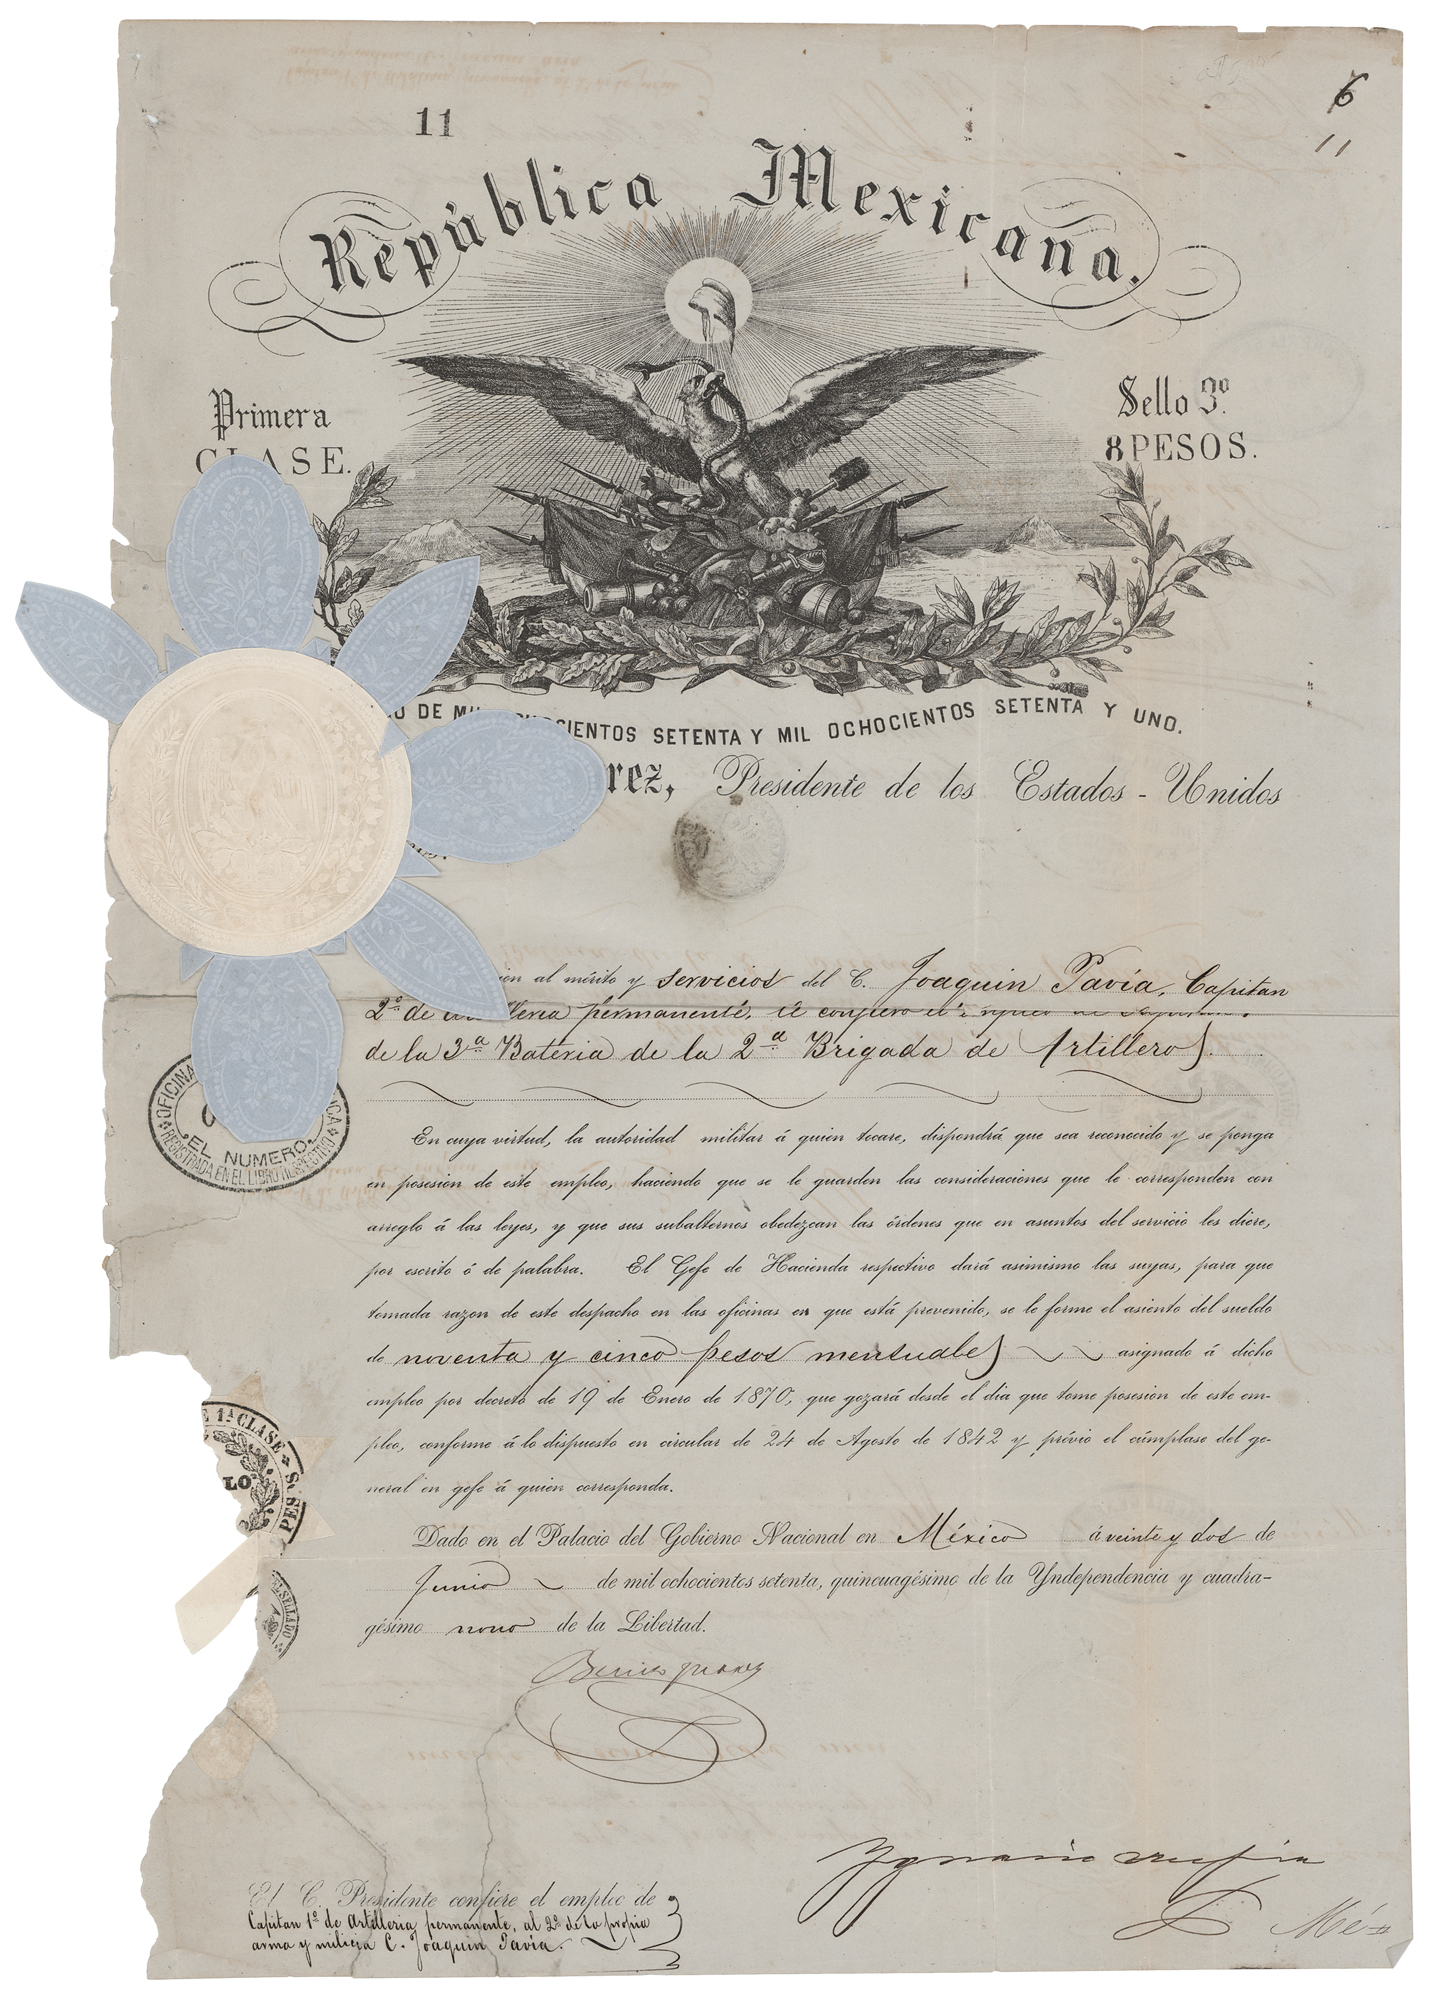 6
11
11
República Mexicana.
Primera
CLASE.
Sello 3º.
8 PESOS.
DE OCHOCIENTOS SETENTA Y MIL OCHOCIENTOS SETENTA Y UNO.
rez, Presidente de los Estados-Unidos
al mérito y servicios del C. Joaquin Pavía, Capitan
2º de Artilleria permanente, le confiero el empleo de Capitan
de la 3ª Bateria de la 2ª Brigada de Artilleros.
OFICINA
EL NUMERO
REGISTRADA EN EL LIBRO RESPECTIVO
En cuya virtud, la autoridad militar á quien tocare, dispondrá que sea reconocido y se ponga
en posesion de este empleo, haciendo que se le guarden las consideraciones que le corresponden con
arreglo á las leyes, y que sus subalternos obedezcan las órdenes que en asuntos del servicio les diere,
por escrito ó de palabra. El Gefe de Hacienda respectivo dará asimismo las suyas, para que
tomada razon de este despacho en las oficinas en que está prevenido, se le forme el asiento del sueldo
de noventa y cinco pesos mensuales asignado á dicho
empleo por decreto de 19 de Enero de 1870, que gozará desde el dia que tome posesion de este em-
pleo, conforme á lo dispuesto en circular de 24 de Agosto de 1842 y prévio el cúmplase del ge-
neral en gefe á quien corresponda.
E 1ª CLASE
8 PESOS
LO
SELLADO
Dado en el Palacio del Gobierno Nacional en México á veinte y dos de
Junio de mil ochocientos setenta, quincuagésimo de la Yndependencia y cuadra-
gésimo nono de la Libertad.
Benito Juarez
Ygnacio Mejia
El C. Presidente confiere el empleo de
Capitan 1º de Artilleria permanente, al 2º de la propia
arma y milicia C. Joaquin Pavía.